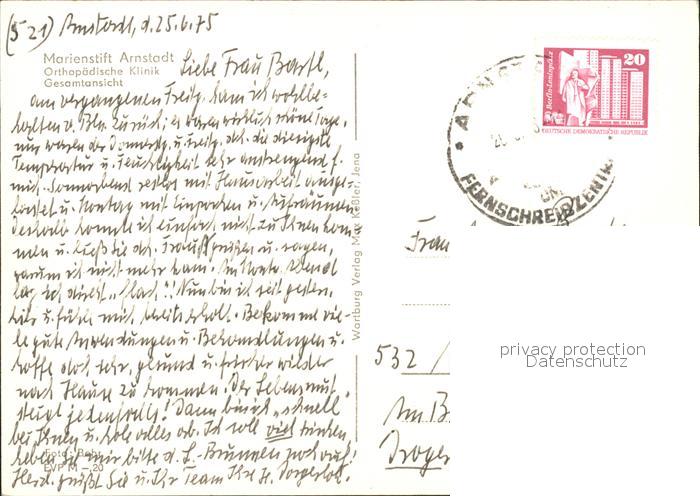 (521) Arnstadt, d. 25.6.75
Marienstift Arnstadt
Orthopädische Klinik
Gesamtansicht
Liebe Frau Bartl,
am vergangenen Freitg. kam ich wohlbe-
halten v. Bln. zurück; es waren wirklich schöne Tage,
nur waren der Donnerstg. u. Freitg. dch. die
Temperatur u. Feuchtigkeit sehr anstrengend f.
mich. Sonnabend restlos mit Hausarbeit ausge-
lastet u. Montag mit Einpacken u. Aufräumen
deshalb konnte ich einfach nicht zu Ihnen kom-
men u. ließ Sie dch. Frau grüßen u. sagen,
warum ich nicht mehr kam. Am Montg. Abend
lag ich direkt "flach"! Nun bin ich seit gestern
hier u. fühle mich bereits erholt. Bekomme vie-
le gute Anwendungen u. Behandlungen u.
hoffe doch sehr, gesund u. frischer wieder
nach Hause zu kommen. Der Lebensmut
steigt jedenfalls! Dann bin ich "schnell"
bei Ihnen u. hole alles ab. Ich soll viel trinken,
heben Sie mir bitte d. -Brunnen noch auf!
Herzl. grüßt Sie u. Ihr Team Ihre
Foto: 
EVP M -,20
Wartburg Verlag Max Keßler, Jena
Berlin-Leninplatz
20
DEUTSCHE DEMOKRATISCHE REPUBLIK
FERNSCHREIB
Frau
532 /
Am B
privacy protection
Datenschutz